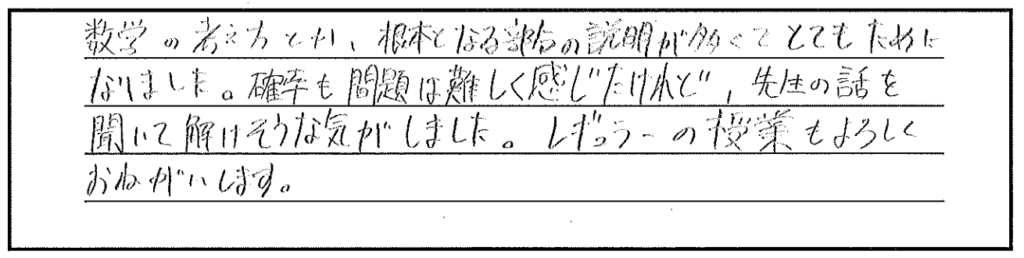 数学の考え方とか、根本となる部分の説明が多くてとてもために
なりました。確率も問題は難しく感じたけれど、先生の話を
聞いて解けそうな気がしました。レギュラーの授業もよろしく
おねがいします。